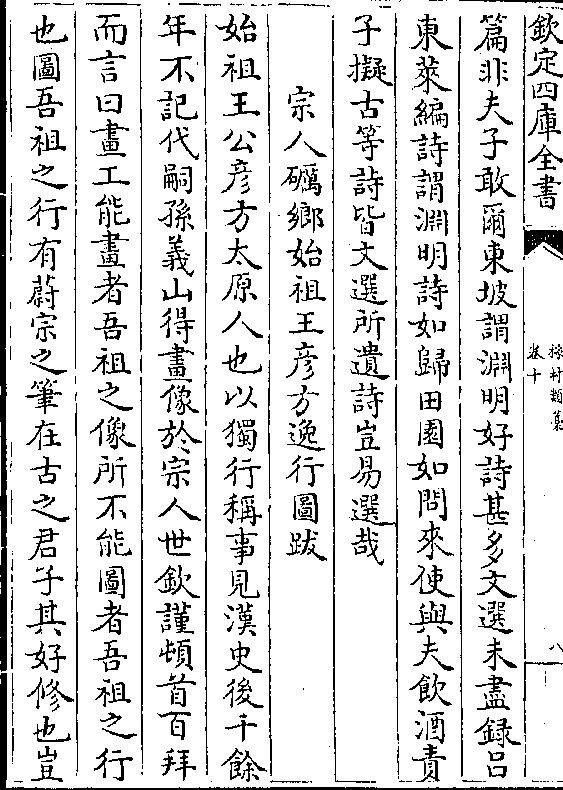 欽定四庫全書
稼村類藁
卷十
八
篇非夫子敢爾東坡謂淵明好詩甚多文選未盡錄呂
東萊編詩謂淵明詩如歸田園如問來使與夫飲酒責
子擬古等詩皆文選所遺詩豈易選哉
宗人礪鄉始祖王彦方逸行圖跋
始祖王公彦方太原人也以獨行稱事見漢史後千餘
年不記代嗣孫義山得畫像於宗人世欽謹頓首百拜
而言曰畫工能畫者吾祖之像所不能圖者吾祖之行
也圖吾祖之行有蔚宗之筆在古之君子其好修也豈